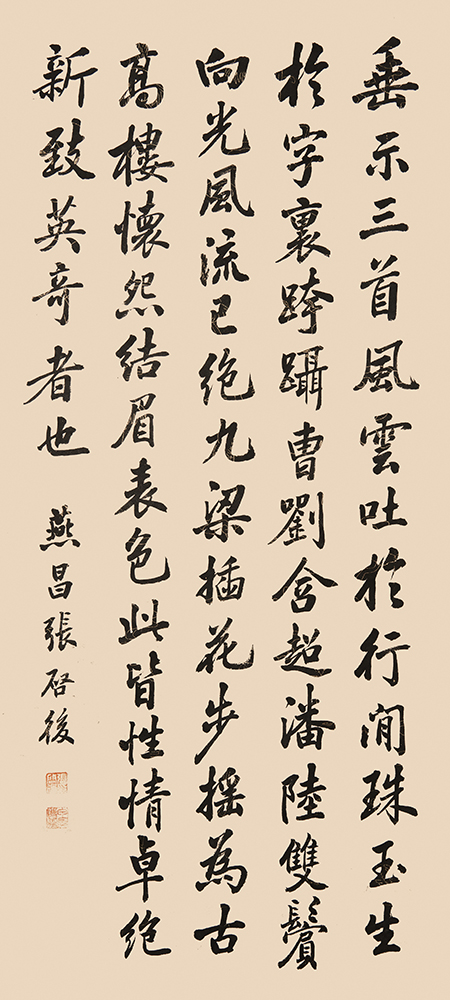 垂示三首風雲吐於行間珠玉生
於字裏跨躡曹劉含超潘陸雙鬢
向光風流已絶九梁插花步摇為古
高樓懷怨結眉表色此皆性情卓絶
新致英奇者也
燕昌張启後